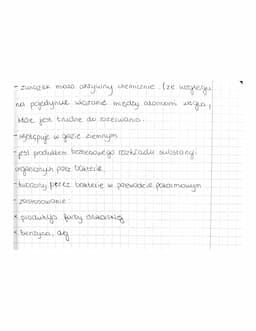 - związek mało aktywny chemicznie. (ze względu
na pojedyncze wiązanie między atomami węgla,
które jest trudne do rozerwania.
- występuje w gazie ziemnym
- jest produktem beztlenowego rozkładu substancji
organicznych przez bakterie,
- tworzony przez bakterie w przewodzie pokarmowym
- zastosowanie:
x produkcja farby drukarskiej
x benzyna, olej